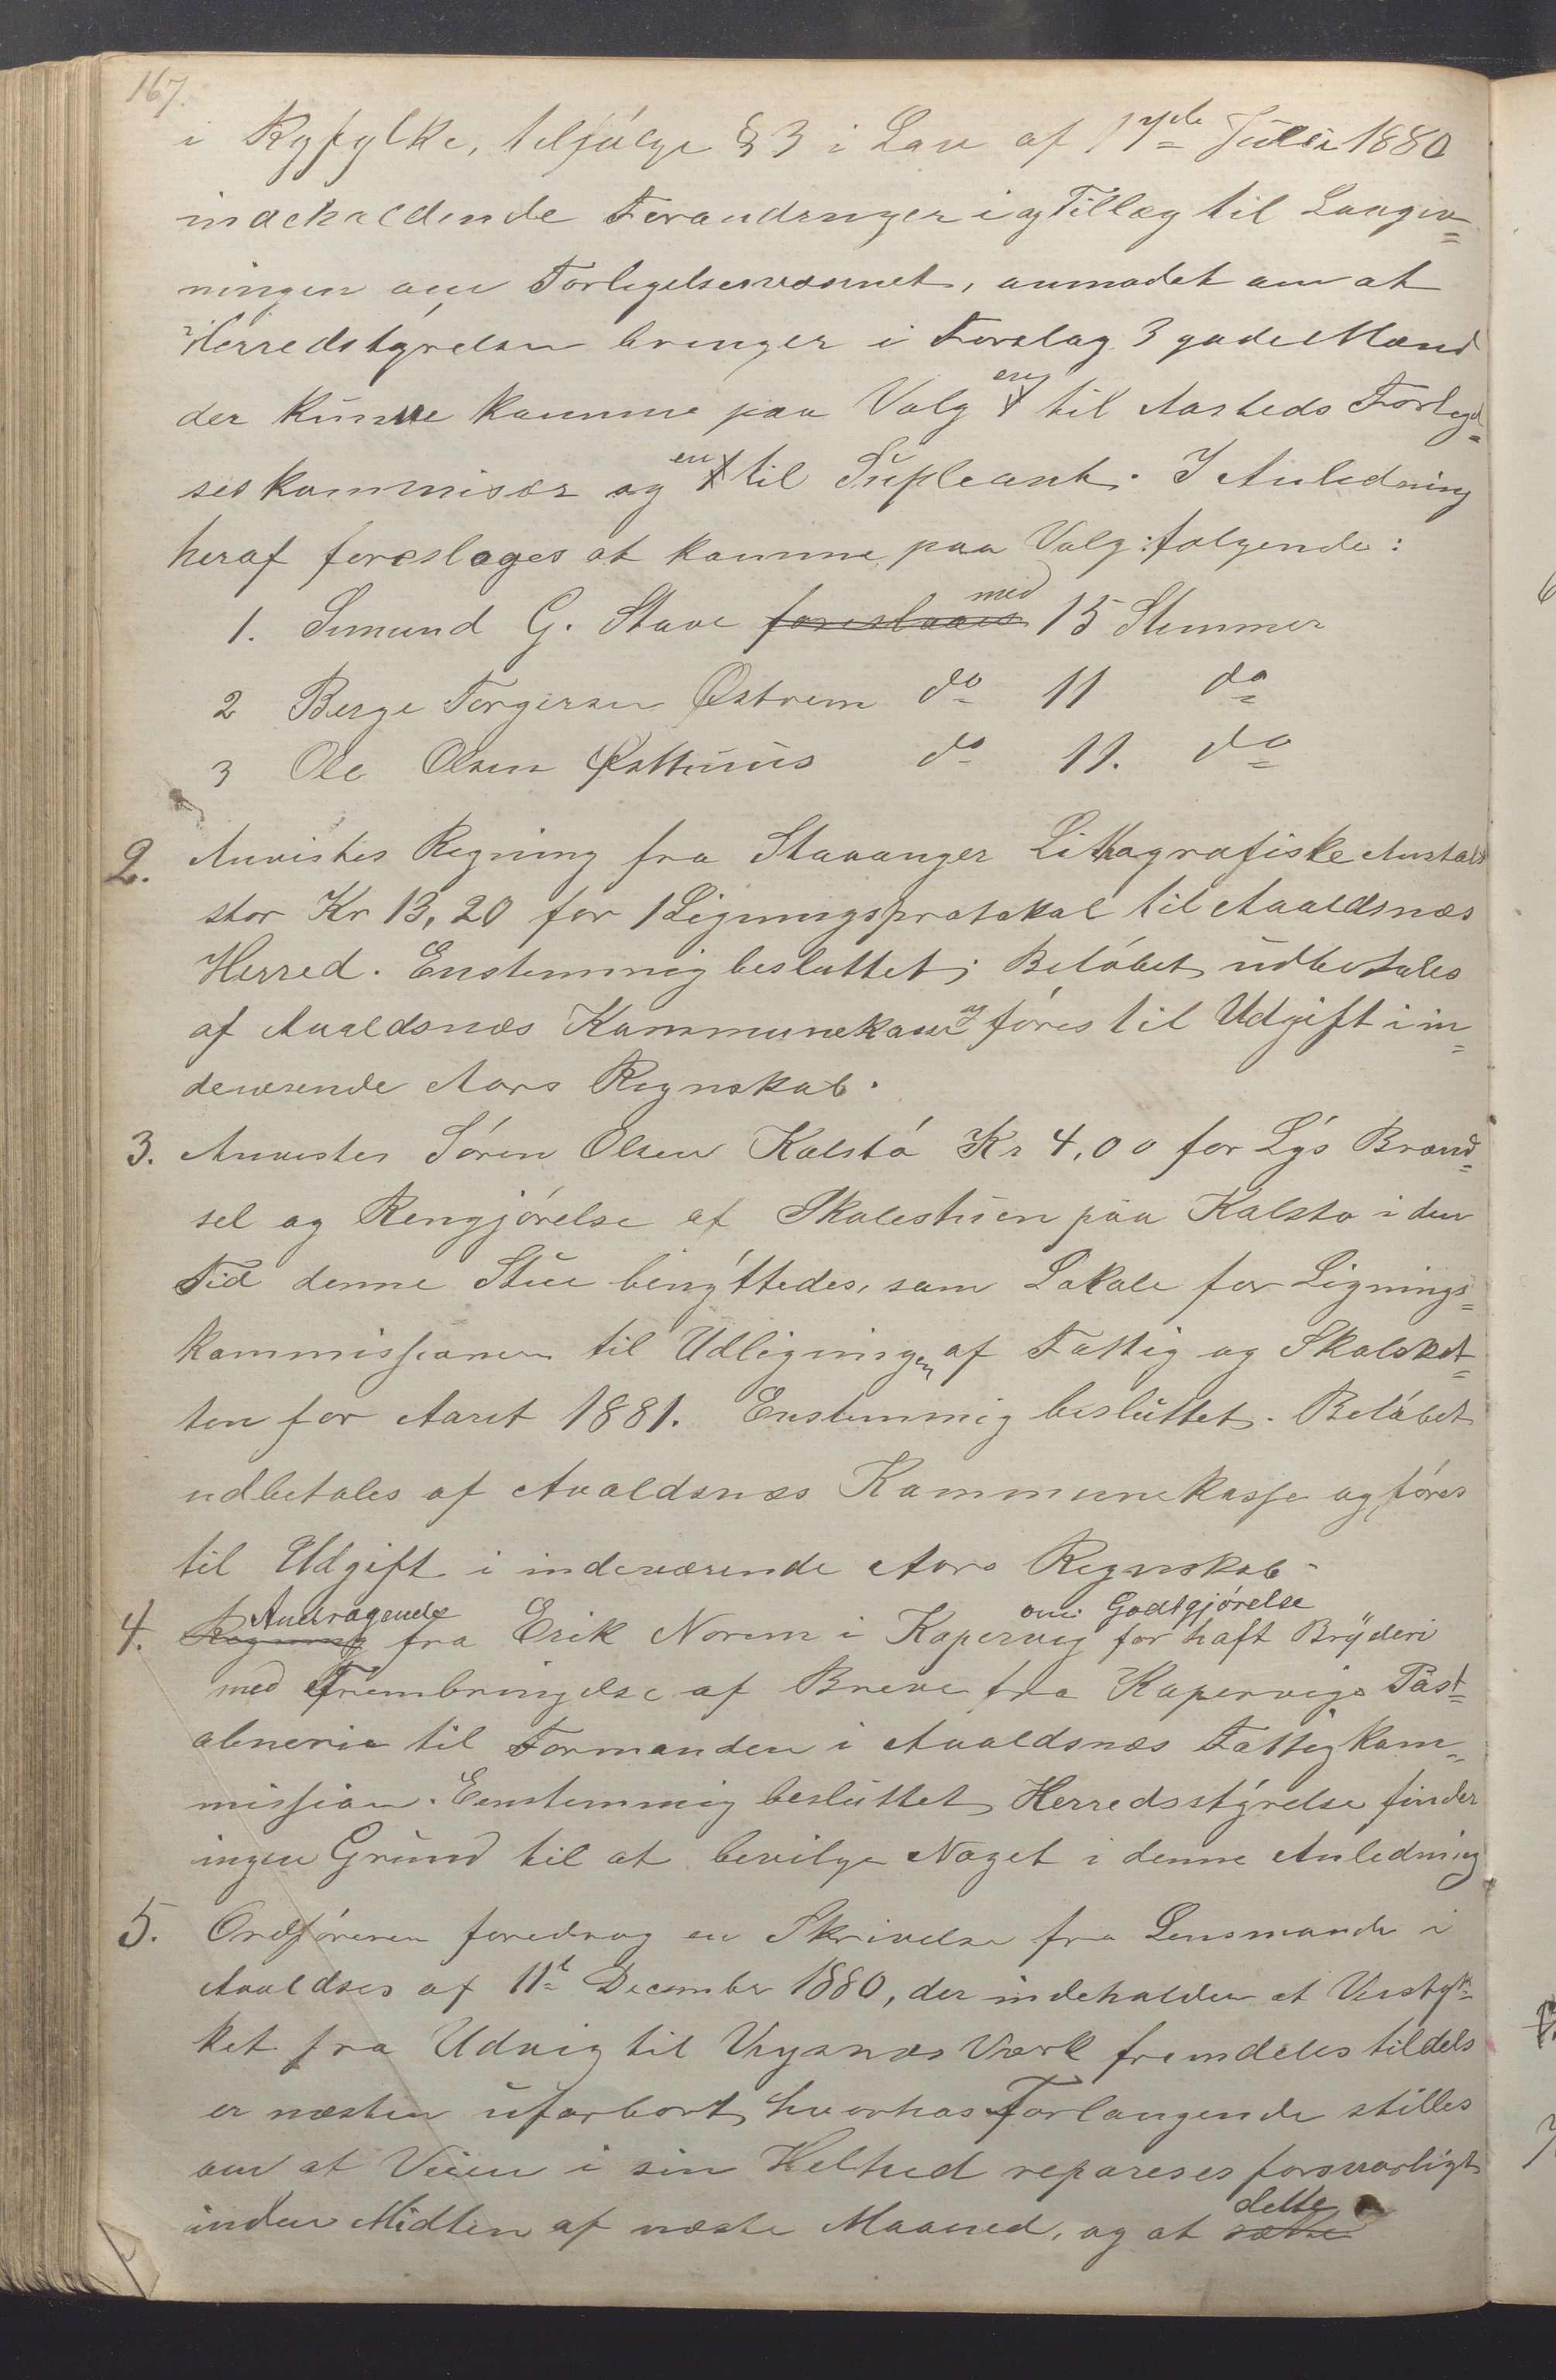 167.
i Ryfylke, tilfølge § 3 i Lov af 17de Juli 1880
indeholdende Forandringer i og Tillæg til Lovgiv=
ningen om Forligelsesvæsenet, anmodet om at
Herredstyrelsen bringer i Forslag 3 gode Mænd
der kunne komme paa Valg en til Aasteds Forligel=
seskommisær og en til Supleant. I Anledning
heraf foreslages at komme paa Valg: følgende:
1. Simund G. Stave foreslaaes med 15 Stemmer
2 Berge Torgersen Østrem do 11 do
3 Ole Olsen Østhuus do 11. do
2. Anvistes Regning fra Stavanger Lithografiske Anstalt
stor Kr 13,20 for 1 Ligningsprotokol til Avaldsnæs
Herred. Enstemmig besluttet; Beløbet udbetales
af Avaldsnæs Kommunekasse og føres til Udgift i in=
deværende Aars Regnskab.
3. Anvistes Søren Olsen Kalstø Kr 4,00 for Lys Brænd=
sel og Rengjørelse af Skolestuen paa Kalstø i den
Tid denne Stue benyttedes, som Lokale for Lignings=
kommissionen til Udligningen af Fattig og Skolskat=
ten for Aaret 1881. Enstemmig besluttet. Beløbet
udbetales af Avaldsnæs Kommunekasse og føres
til Udgift i indeværende Aars Regnskab.
4. Regning Andragende fra Erik Norem i Kopervig om Godtgjørelse for haft Bryderi
med Frembringelse af Breve fra Kopervigs Post=
abneri til Formanden i Avaldsnæs Fattigkom=
mission. Eenstemmig besluttet Herredsstyrelse finder
ingen Grund til at bevilge Noget i denne Anledning
5. Ordføreren foredrog en Skrivelse fra Lensmanden i
Avaldses af 11t December 1880, der indeholder at Veistyk=
ket fra Udvig til Vigsnæs Værk fremdeles tildels
er næsten ufarbart, hvorhos Forlangende stilles
om at Veien i sin Helhed repareres forsvarligt
inden Midten af næste Maaned, og at dette